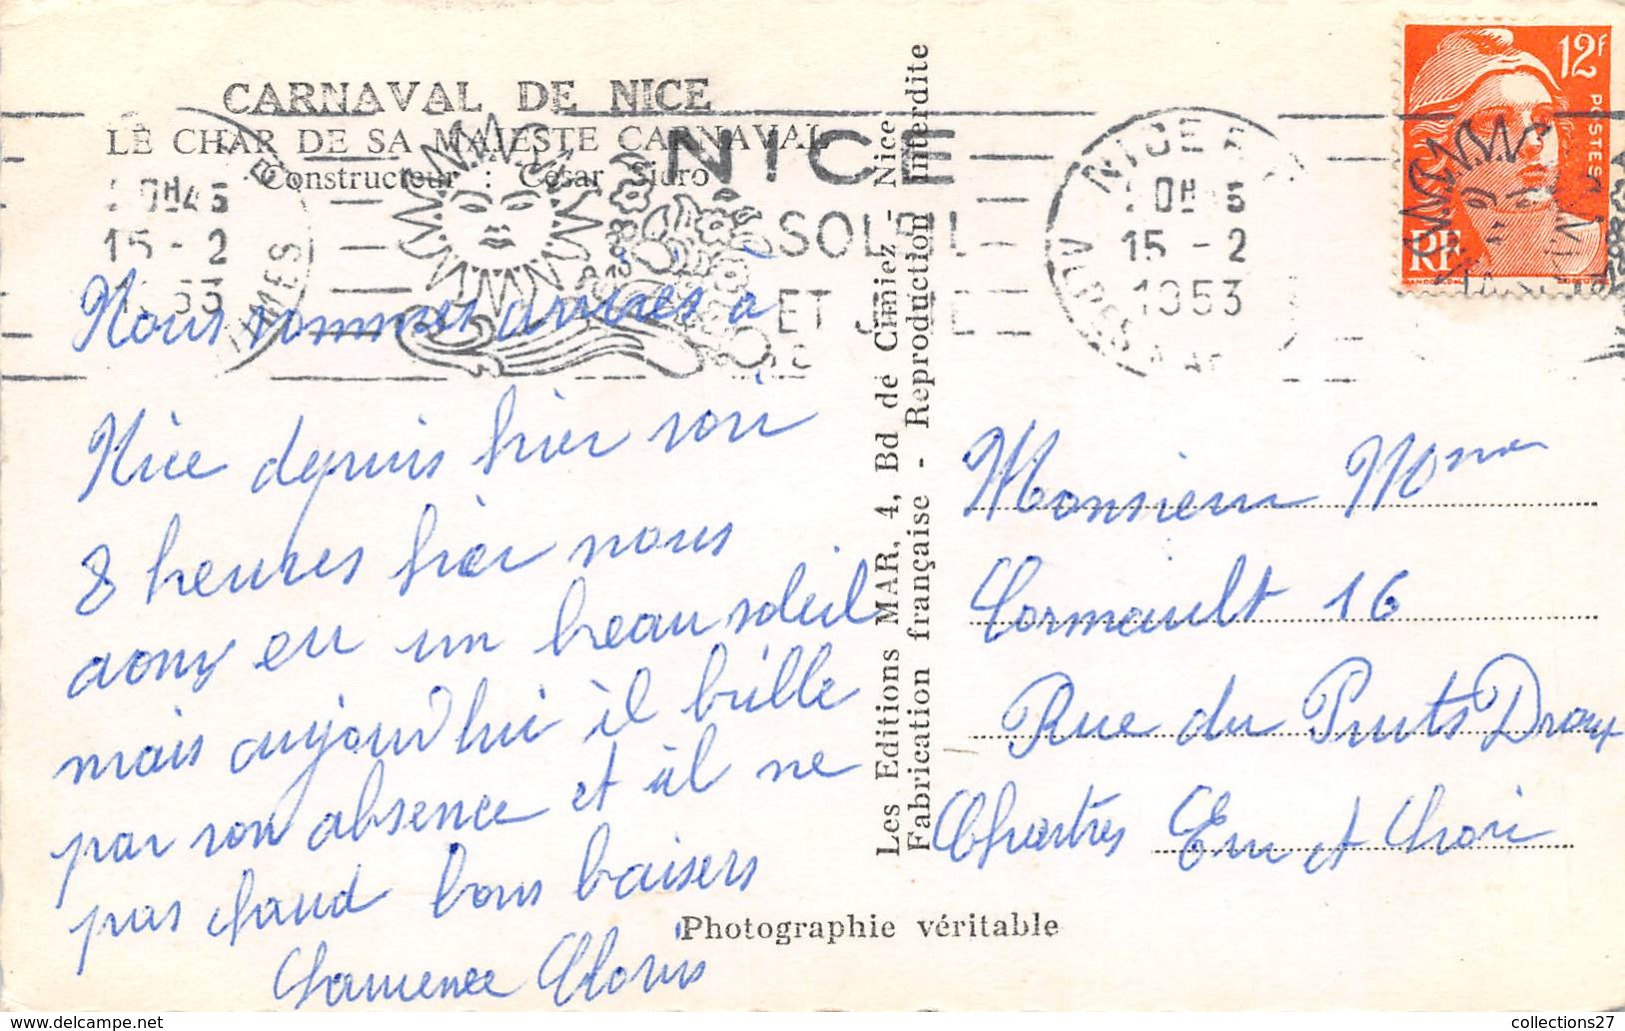 CARNAVAL DE NICE
LE CHAR DE SA MAJESTE CARNAVAL
Constructeur : César Sidro
NICE
SOLEIL
ET
15 - 2
1953
NICE
15 - 2
1953
12F
POSTES
RF
Nous sommes arrivés a
Nice depuis hier soir
8 heures hier nous
avons eu un beau soleil
mais aujourd'hui il brille
par son absence et il ne
pas chaud bons baisers
Clovis
Les Editions MAR, 4, Bd de Cimiez - Nice
Fabrication française - Reproduction interdite
Photographie véritable
Monsieur Mme
Cormault 16
Rue du Puits Droux
Chartres Eur et Loir
collections27